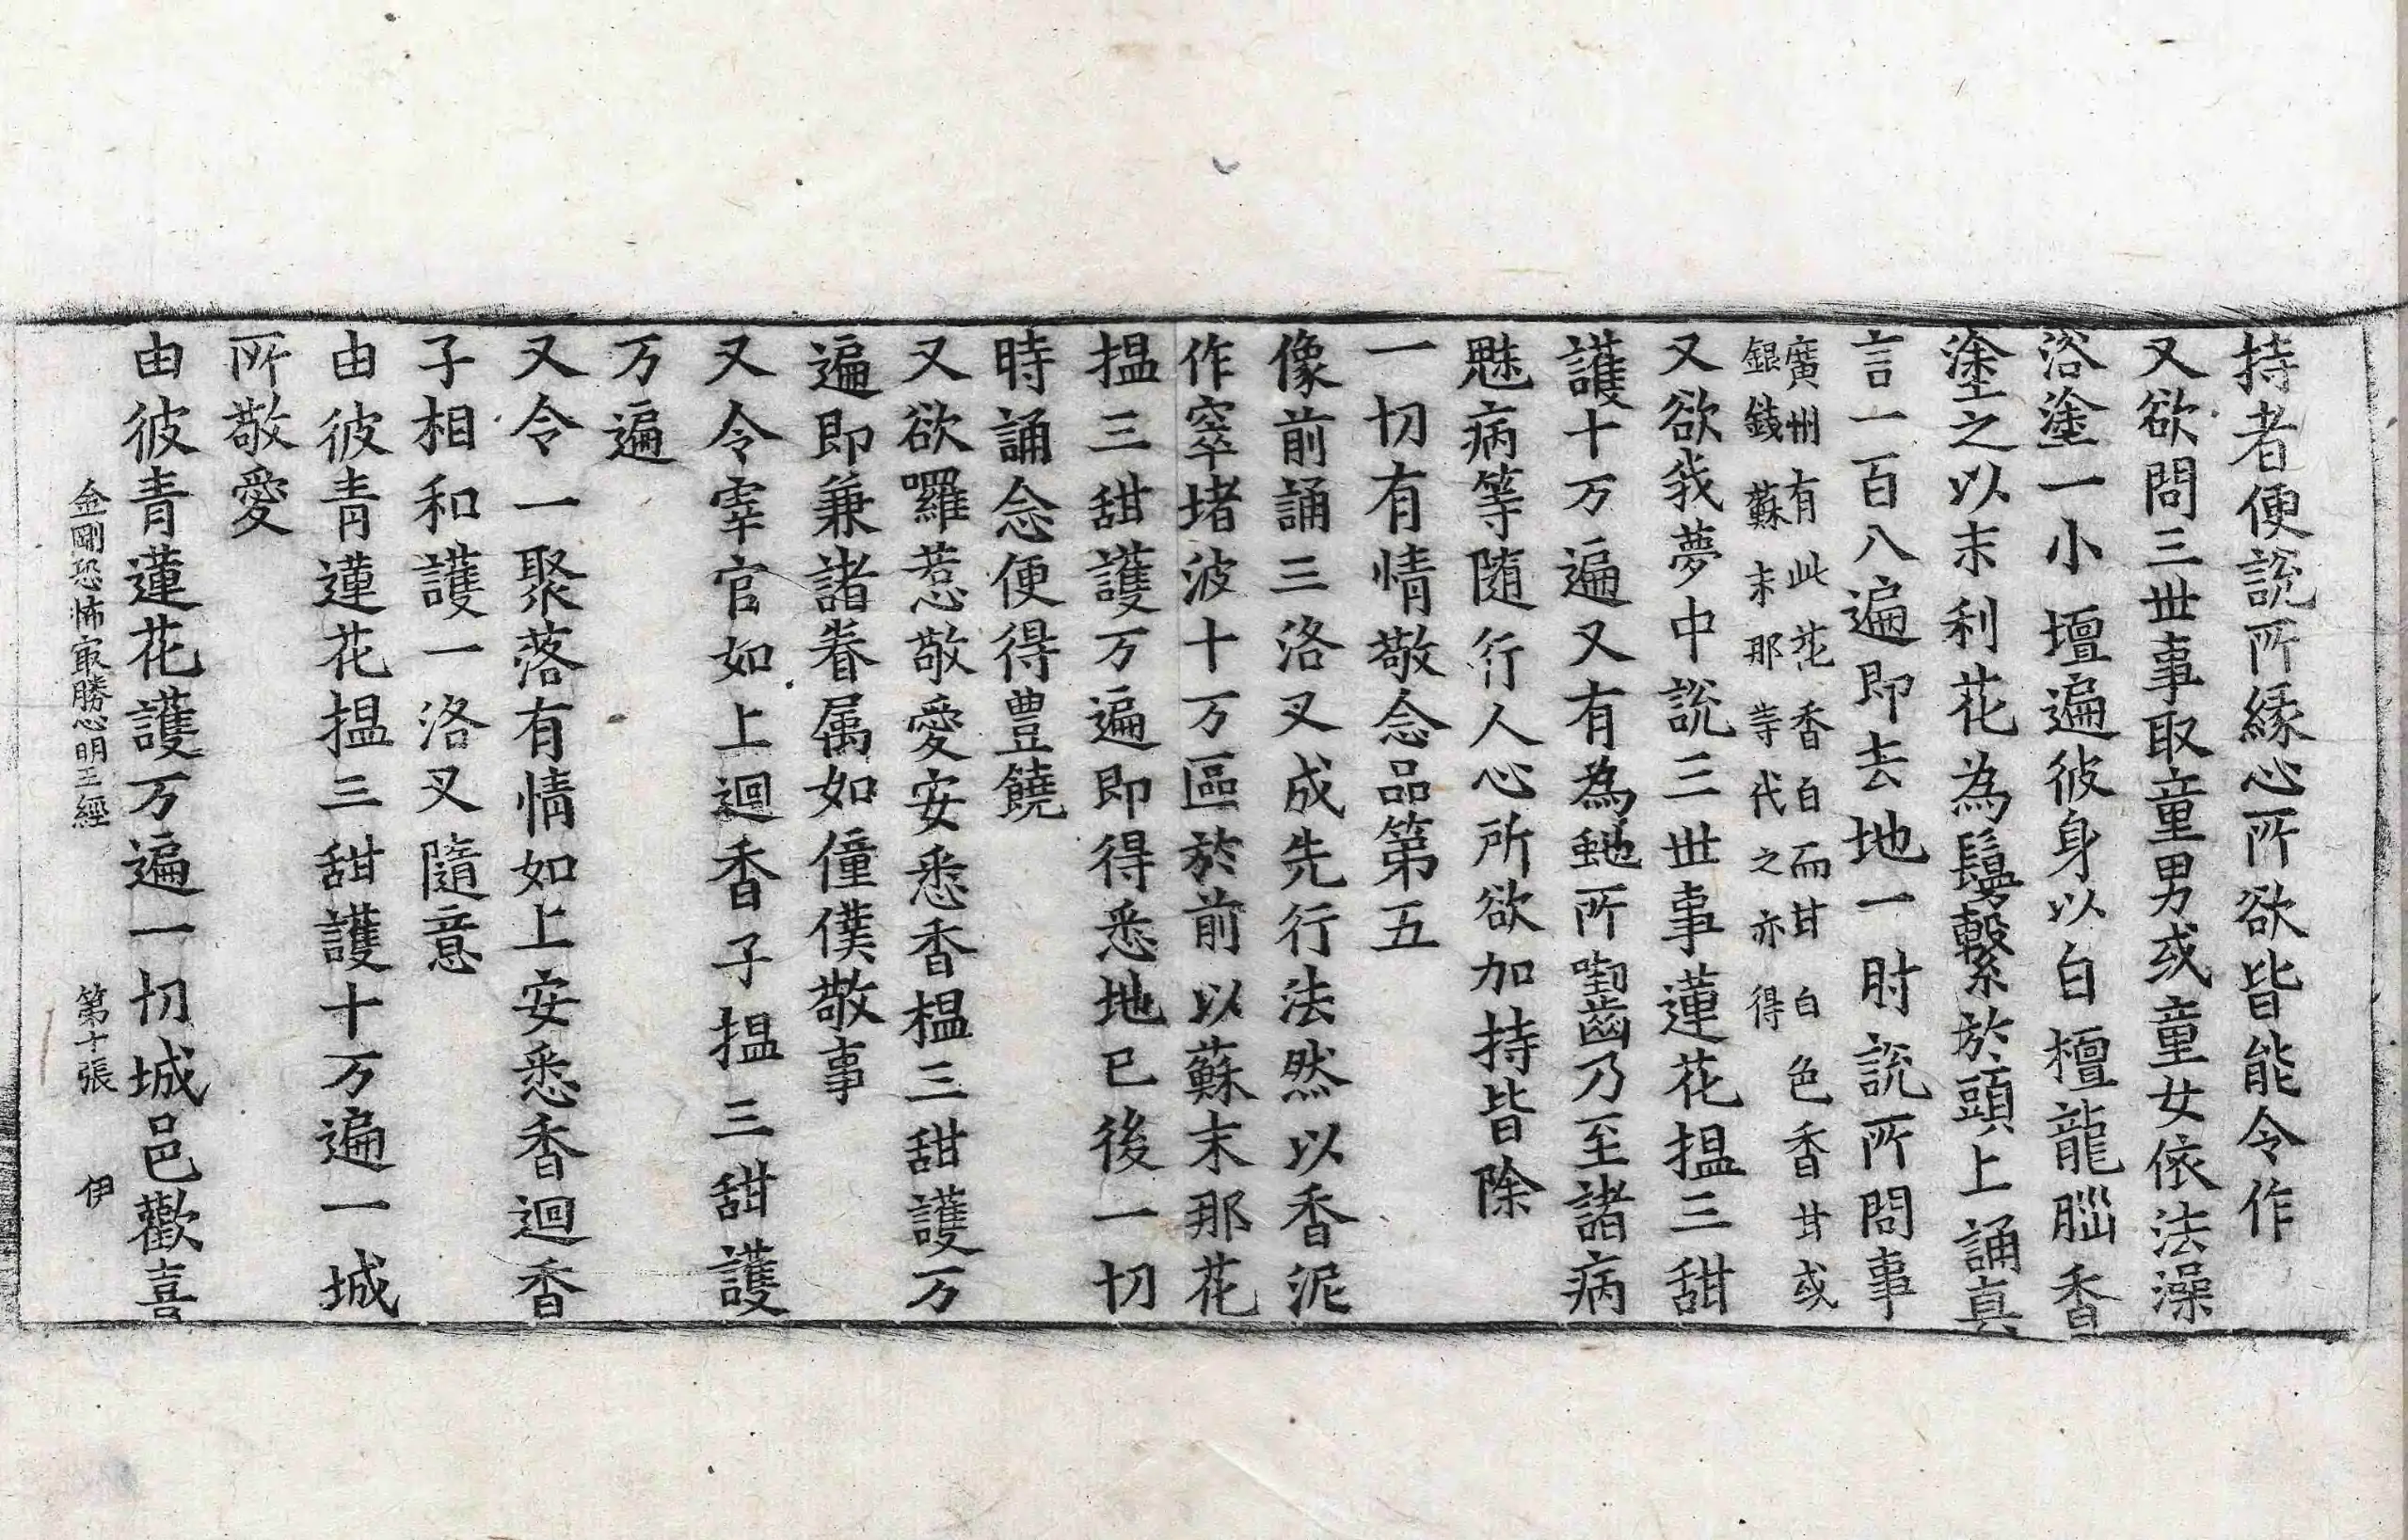 持者便說所緣心所欲皆能令作
又欲問三世事取童男或童女依法澡
浴塗一小壇遍彼身以白檀龍腦香
塗之以末利花為鬘繫於頭上誦真
言一百八遍即去地一肘說所問事
廣州有此花香白而甘白色香甘或
銀錢蘇末那等代之亦得
又欲我夢中說三世事蓮花搵三甜
護十万遍又有為虵所囓齒乃至諸病
魅病等隨行人心所欲加持皆除
一切有情敬念品第五
像前誦三洛叉成先行法然以香泥
作窣堵波十万區於前以蘇末那花
搵三甜護万遍即得悉地已後一切
時誦念便得豊饒
又欲囉惹敬愛安悉香榅三甜護万
遍即兼諸眷属如僮僕敬事
又令宰官如上迴香子搵三甜護
万遍
又令一聚落有情如上安悉香迴香
子相和護一洛叉隨意
由彼青蓮花搵三甜護十万遍一城
所敬愛
由彼青蓮花護万遍一切城邑歡喜
金剛恐怖㝡勝心明王經 第十張 伊